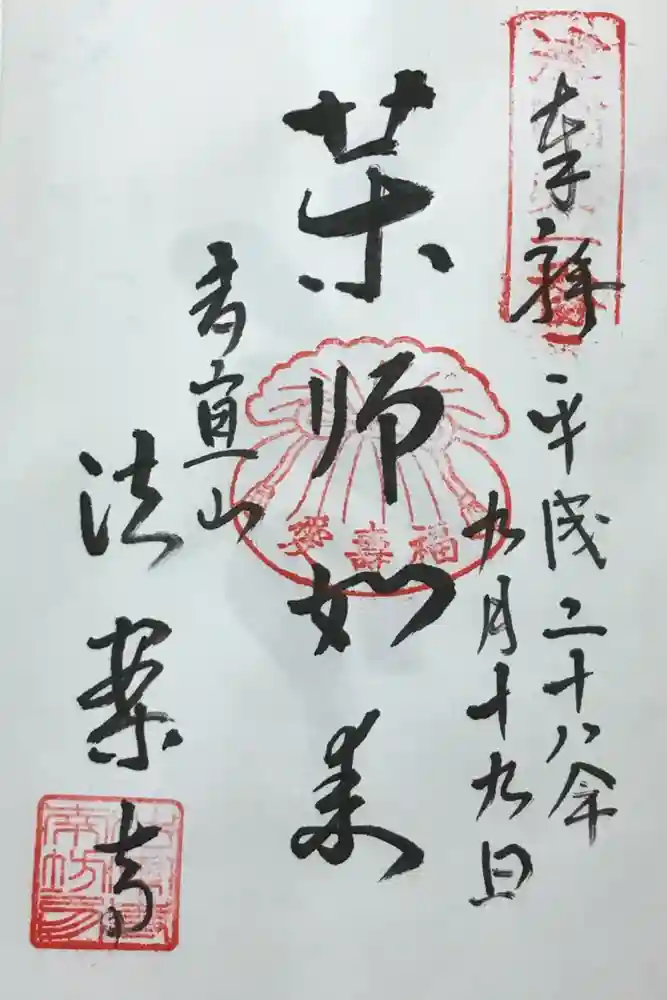 奉拝
平成二十八年
九月十九日
薬師如来
福壽愛
山
法案寺